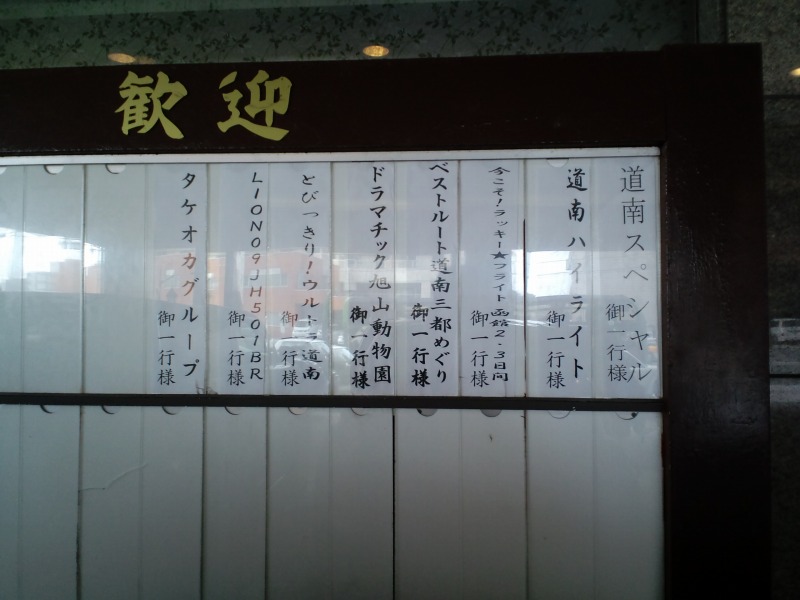 歓迎
道南スペシャル
御一行様
道南ハイライト
御一行様
今こそ!ラッキー★フライト函館2・3日間
御一行様
ベストルート道南三都めぐり
御一行様
ドラマチック旭山動物園
御一行様
とびっきり!ウルトラ道南
御一行様
LION09JH501BR
御一行様
タケオカグループ
御一行様